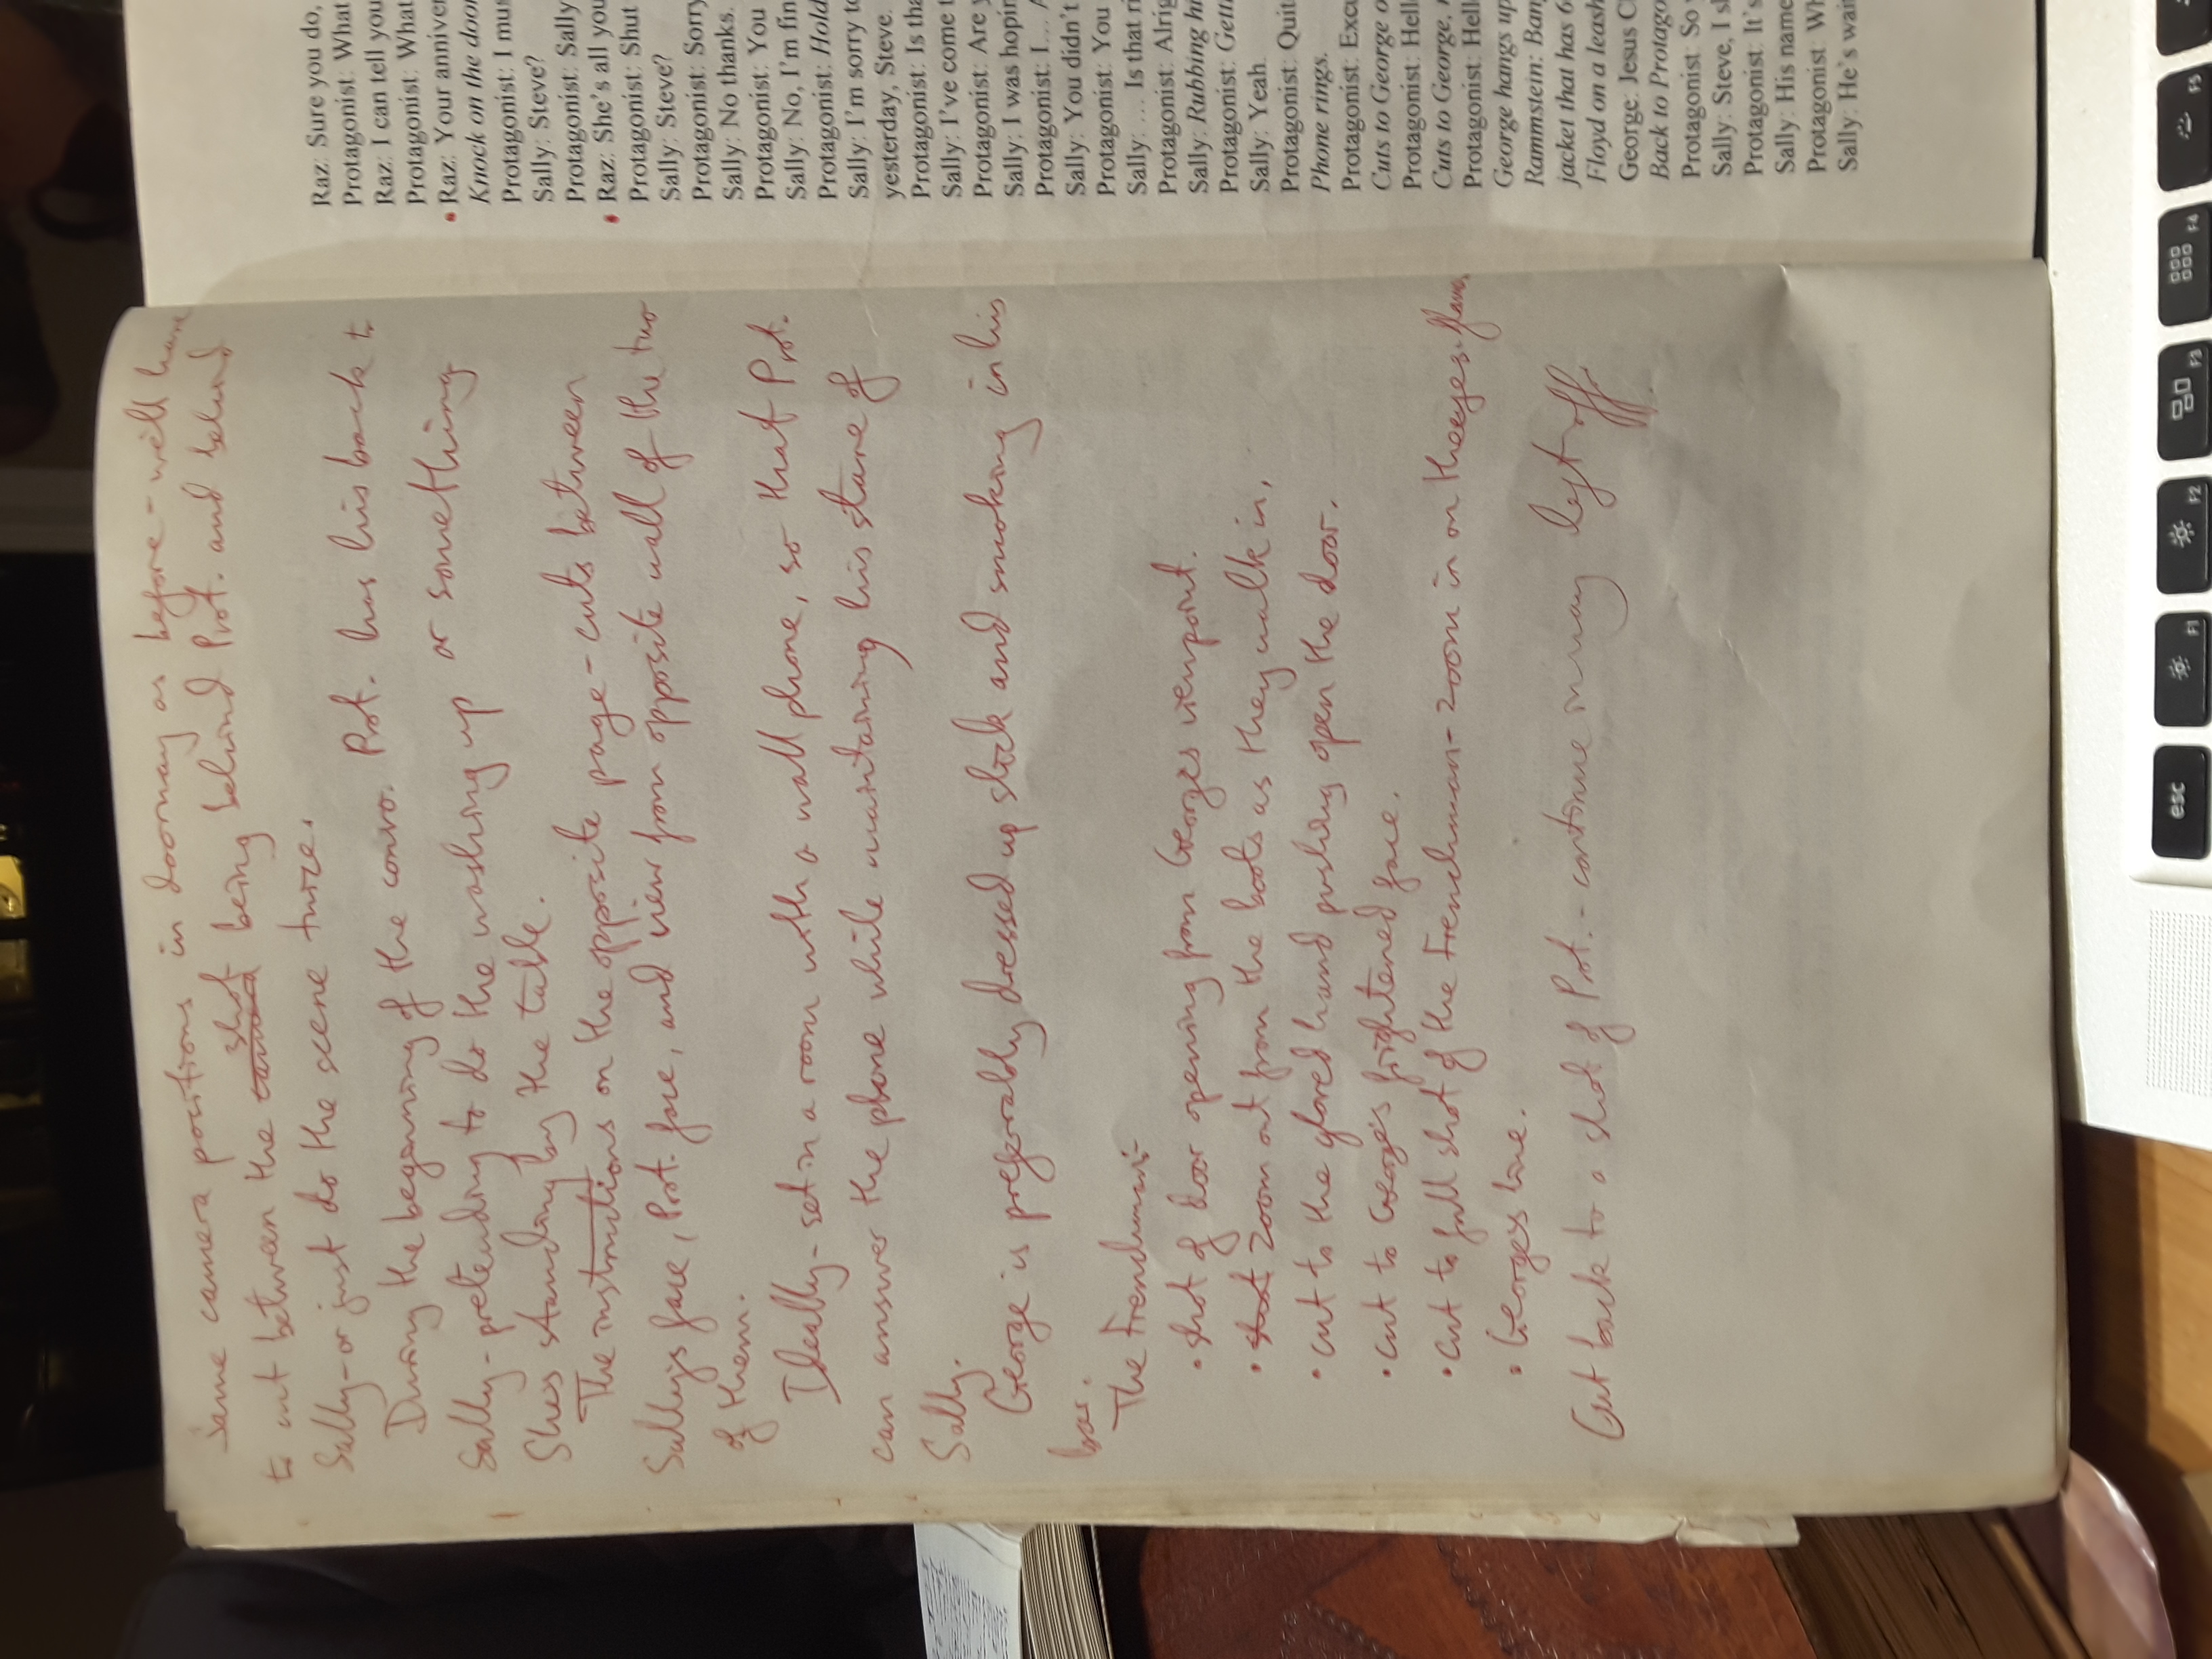 Same camera positions in doorway as before - we'll have
to cut between the camera shot being behind Prot. and behind
Sally - or just do the scene twice.
During the beginning of the convo. Prot. has his back to
Sally - pretending to do the washing up or something
She's standing by the table.
The instructions on the opposite page - cuts between
Sally's face, Prot. face, and view from opposite wall of the two
of them.
Ideally - set in a room with a wall phone, so that Prot.
can answer the phone while maintaining his stare of
Sally.
George is preferrably dressed up slick and smoking in his
bar.
The Frenchman:-
• shot of door opening from George's viewpoint.
• shot zoom out from the boots as they walk in,
• cut to the gloved hand pushing open the door.
• cut to George's frightened face.
• cut to full shot of the Frenchman - zoom in on the eyes.
• George's line.
Cut back to a shot of Prot. - continue in way left off
Raz: Sure you do,
Protagonist: What
Raz: I can tell you
Protagonist: What
• Raz: Your anniver
Knock on the door
Protagonist: I mus
Sally: Steve?
Protagonist: Sally
• Raz: She's all you
Protagonist: Shut
Sally: Steve?
Protagonist: Sorry
Sally: No thanks.
Protagonist: You
Sally: No, I'm fin
Protagonist: Hold
Sally: I'm sorry to
yesterday, Steve.
Protagonist: Is tha
Sally: I've come t
Protagonist: Are y
Sally: I was hopin
Protagonist: I... A
Sally: You didn't
Protagonist: You
Sally: ... Is that ri
Protagonist: Alrig
Sally: Rubbing hi
Protagonist: Getti
Sally: Yeah.
Protagonist: Quit
Phone rings.
Protagonist: Excu
Cuts to George o
Protagonist: Hell
Cuts to George,
Protagonist: Hell
George hangs up
Rammstein: Ban
jacket that has 6
Floyd on a leash
George: Jesus C
Back to Protago
Protagonist: So
Sally: Steve, I sh
Protagonist: It's
Sally: His name
Protagonist: Wh
Sally: He's wait
esc F1 F2 F3 F4 F5